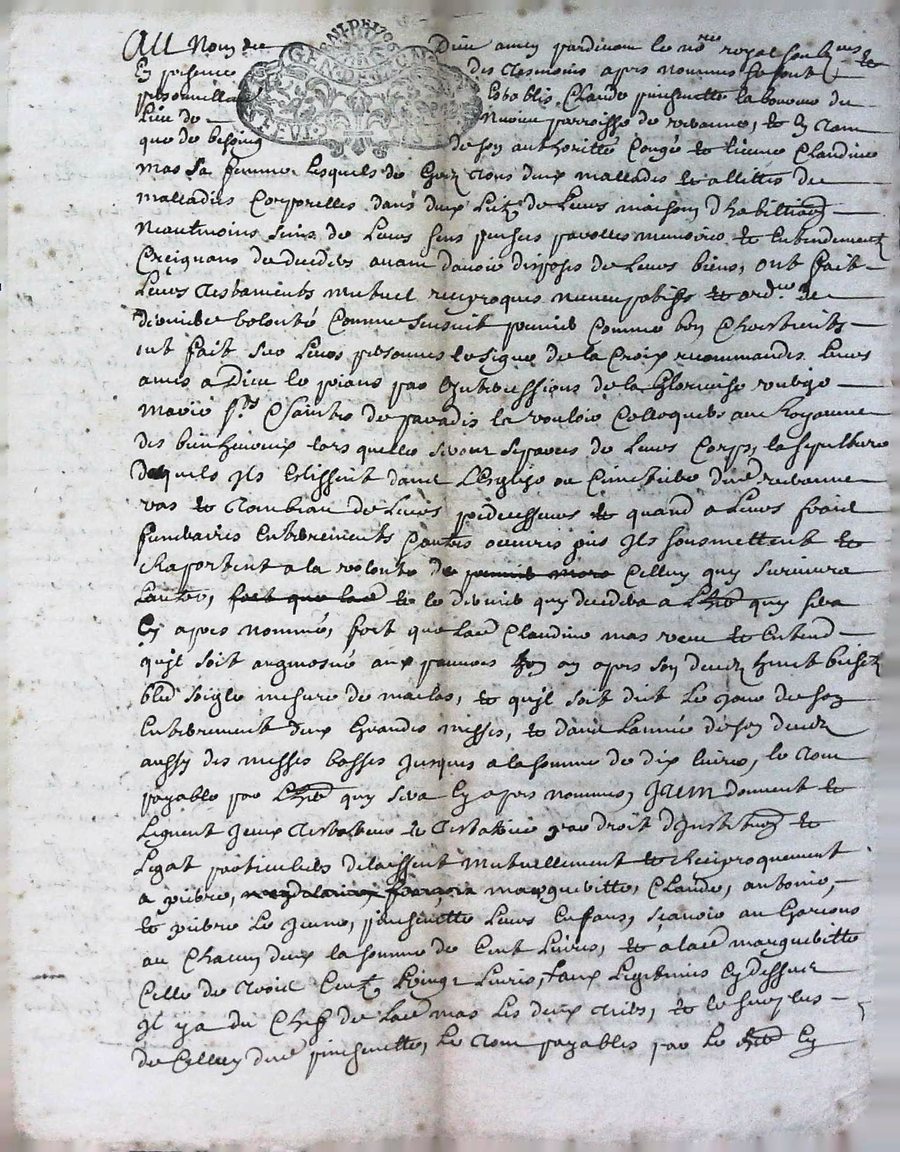 GEN DE LION
Au Nom de Dieu amen pardevant le no.re royal soub.né et
En presence des tesmoins apres nommes se sont
personnellem establis Claude pinchinette laboureur du
Lieu de paroisse de revanne, et en tant
que de besoing de son authoritté Congé et licence Claudine
mas sa femme Lesquels de Gein tous deux mallades et allittés de
malladies Corporelles dans deux Lits de Leurs maison d'habitaon
Neantmoins sains de Leurs sens penses parolles memoires et Entendement
Creignans de deceder avant davoir disposés de Leurs biens, ont fait
Leurs testaments mutuel reciproques nuncupatifs et ord.re de
derniere volonté Comme sensuit premier Comme bon Chrestients
ont fait sur Leurs personnes le signe de la Croix recommandes Leurs
ames a Dieu le priant par Intercessions de la Glorieuse vierge
marie St.s Saintes de paradis la vouloir Colloquer au Royaume
des bien heureux lors quelles seront separees de Leurs Corps, la sepulture
desquels Ils Elissent dans L'Esglise ou Cimetiere dud revanne
vas et Tombeau de Leurs predecesseurs et quand a Leurs frais
funeraires Enterrements pauvres oeuvres pies Ils sousmettent et
Raportent a la volonté de Celluy quy survivra
Lautre, et le dernier quy decedera a L'her quy sera
Cy apres nommé, fort que lad Claudine mas veut et Entend
quil soit aumosné aux pauvres un an apres son deced huict bichets
bled seigle mesure de marlas, et quil soit dict Le jour de son
Enterrement deux Grandes messes, et dans Lannée de son deced
aussy des messes basses jusques a la somme de dix livres, le tout
payable par L'her quy sera Cy apres nommé, Item donnent et
Leguent Iceux testateur et testatrice par droit d'Institution et
Legat particuliers delaissent mutuellement et Reciproquement
a pierre, margueritte, Claude, antoine,
et pierre Le jeune, pinchinette Leurs Enfans, scavoir au Garcons
au Chacun deux la somme de Cent Livres, et a lad margueritte
Celle de trois Cent vingt Livres, Ledessus
Il y a du Chef de lad mas les deux tiers, et le surplus
de Celluy dud pinchinette, Le tout payables par Le her Cy